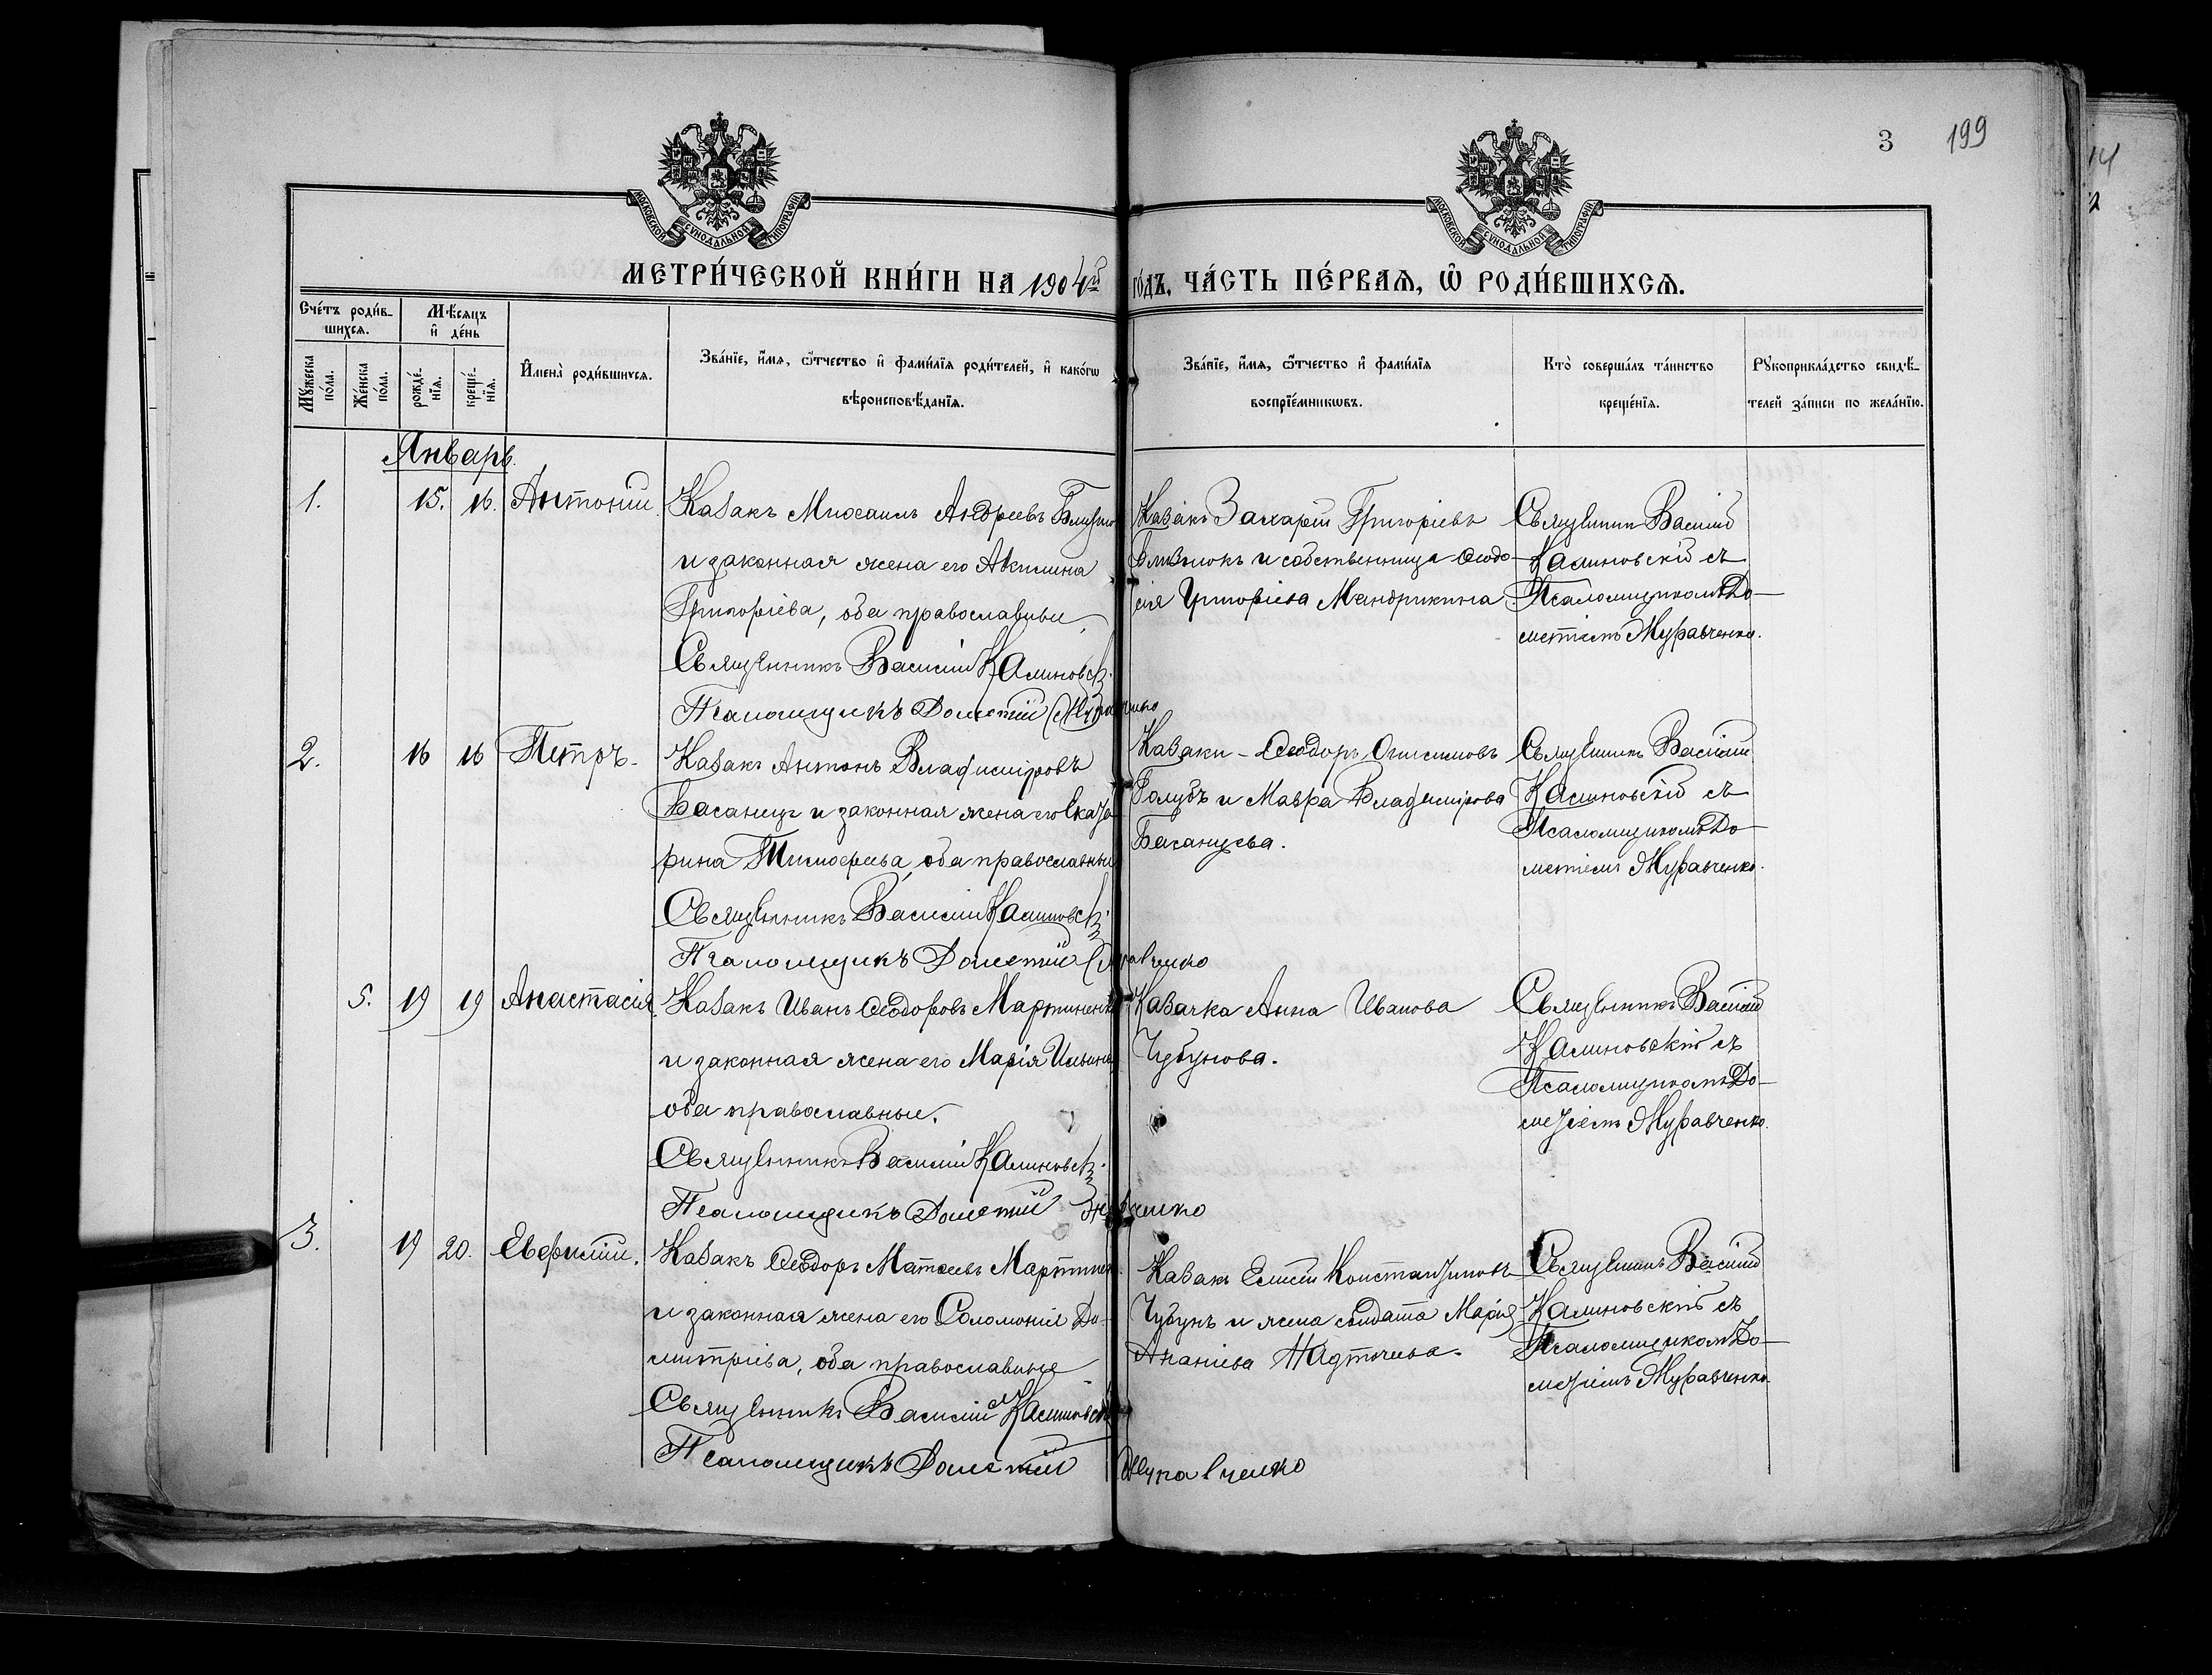 3 199
МОСКОВСКОЙ СѴНОДАЛЬНОЙ ТИПОГРАФІИ
МОСКОВСКОЙ СѴНОДАЛЬНОЙ ТИПОГРАФІИ
МЕТРИ́ЧЕСКОЙ КНИ́ГИ НА 1904й го́дъ, ЧА́СТЬ ПЕ́РВАѦ, Ѡ҆ РОДИ́ВШИХСѦ.
Сче́тъ роди́в-
шихсѧ.
Мꙋ́жеска по́ла.
Же́нска по́ла.
Мѣ́сѧцъ
и҆ де́нь
рожде́-
нїѧ.
креще́-
нїѧ.
И҆мена̀ роди́вшихсѧ.
Зва́нїе, и҆́мѧ, ѻ҆́тчество и҆ фами́лїѧ роди́телей, и҆ како́гѡ
вѣроисповѣ́данїѧ.
Зва́нїе, и҆́мѧ, ѻ҆́тчество и҆ фами́лїѧ
воспрїе́мникѡвъ.
Кто̀ соверша́лъ та́инство
креще́нїѧ.
Рꙋкоприкла́дство свидѣ́-
телей за́писи по жела́нїю.
Январь.
1. 15. 16. Антоній.
Казакъ Михаилъ Андреевъ
и законная жена его Акилина
Григоріева, оба православные
Священникъ Василій Калиновск
Псаломщикъ Дометій Муравченко
Казакъ Захарій Григоріевъ
Близнюкъ и собственница Ѳеодо-
сія Григоріева Мандрикина
Священник Василій
Калиновскій съ
Псаломщикомъ До-
метіемъ Муравченко.
2. 16 16 Петръ.
Казакъ Антонъ Владиміровъ
Басанецъ и законная жена его Екате
рина Тимоѳеева, оба православны
Священникъ Василій Калиновск
Псаломщикъ Дометій Муравченко
Казаки - Ѳеодоръ Онисимовъ
Голубъ и Мавра Владимірова
Басанцева.
Священник Василій
Калиновскій съ
Псаломщикомъ До-
метіемъ Муравченко.
5. 19 19 Анастасія.
Казакъ Иванъ Ѳеодоровъ Мартиненк
и законная жена его Марія Ильина
оба православные.
Священникъ Василій Калиновск
Псаломщикъ Дометій Муравченко
Казачка Анна Иванова
Чубунова.
Священникъ Василій
Калиновскій съ
Псаломщикомъ До-
метіемъ Муравченко.
3. 19 20. Евфимій.
Казакъ Ѳеодоръ Матѳеевъ Мартинен
и законная жена его Соломонія Ди-
митріева, оба православные
Священникъ Василій Калиновск
Псаломщикъ Дометій Муравченко
Казакъ Елисей Константиновъ
Чубунъ и жена солдата Марія
Ананіева
Священникъ Василій
Калиновскій съ
Псаломщикомъ До-
метіемъ Муравченко.